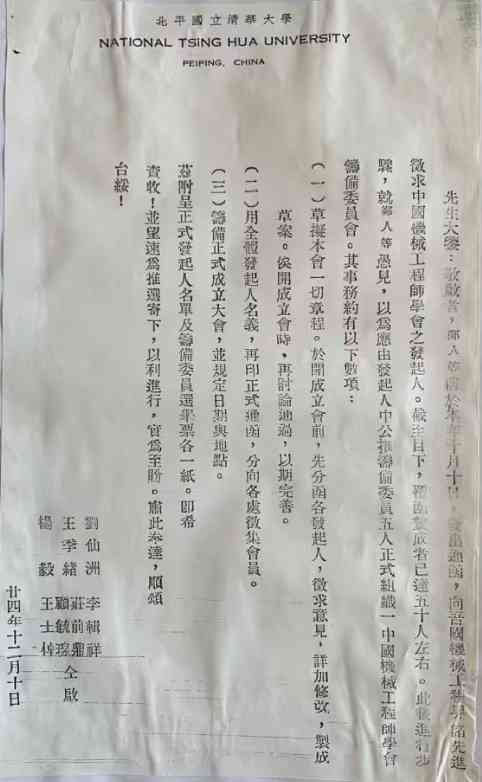 北平國立清華大學
NATIONAL TSING HUA UNIVERSITY
PEIPING, CHINA
先生大鑒:敬啟者,鄙人等前於本年十月十日,發出通函,向吾國機械工程界諸先進
徵求中國機械工程師學會之發起人。截至目下,覆函贊成者已達五十人左右。此後進行步
驟,就鄙人等愚見,以為應由發起人中公推籌備委員五人正式組織一中國機械工程師學會
籌備委員會。其事務約有以下數項:
(一)草擬本會一切章程。於開成立會前,先分函各發起人,徵求意見,詳加修改,製成
草案。俟開成立會時,再討論通過,以期完善。
(二)用全體發起人名義,再印正式通函,分向各處徵集會員。
(三)籌備正式成立大會,並規定日期與地點。
茲附呈正式發起人名單及籌備委員選舉票各一紙。即希
查收!並望速為推選寄下,以利進行,實為至盼。肅此奉達,順頌
台綏!
劉仙洲 李輯祥
王季緒 莊前鼎
顧毓瑔 仝啟
楊毅 王士倬
廿四年十二月十日